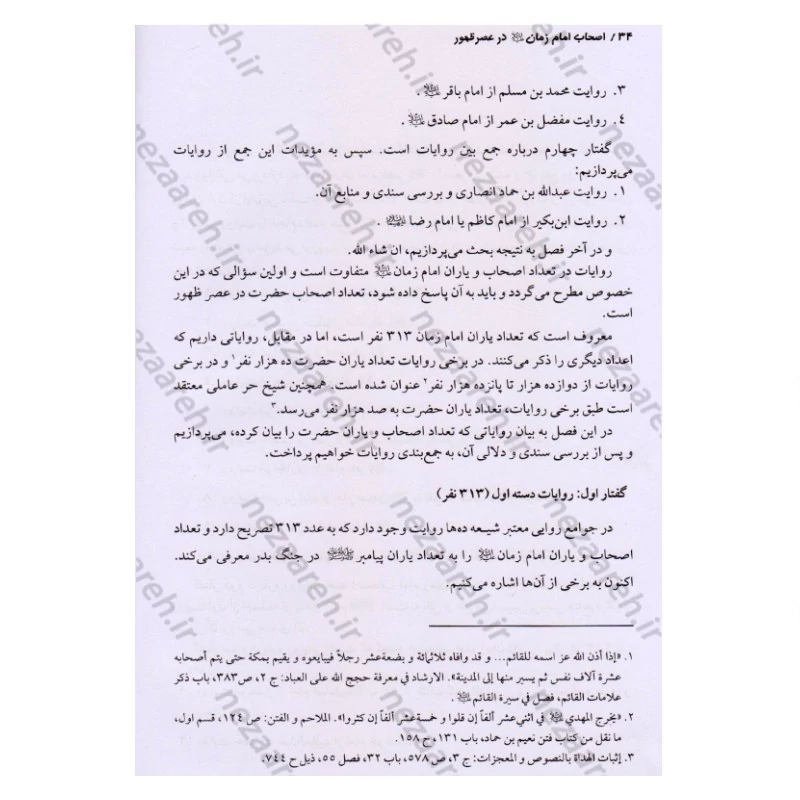 ۳۴ / اصحاب امام زمان ﷷ در عصر ظهور
۳. روایت محمد بن مسلم از امام باقر .
۴. روایت مفضل بن عمر از امام صادق .
گفتار چهارم درباره جمع بین روایات است. سپس به مؤیدات این جمع از روایات
می‌پردازیم:
۱. روایت عبدالله بن حماد انصاری و بررسی سندی و منابع آن.
۲. روایت ابن‌بکیر از امام کاظم یا امام رضا .
و در آخر فصل به نتیجه بحث می‌پردازیم، ان شاء الله.
روایات در تعداد اصحاب و یاران امام زمان متفاوت است و اولین سؤالی که در این
خصوص مطرح می‌گردد و باید به آن پاسخ داده شود، تعداد اصحاب حضرت در عصر ظهور
است.
معروف است که تعداد یاران امام زمان ۳۱۳ نفر است، اما در مقابل، روایاتی داریم که
اعداد دیگری را ذکر می‌کنند. در برخی روایات تعداد یاران حضرت ده هزار نفر۱ و در برخی
روایات از دوازده هزار تا پانزده هزار نفر۲ عنوان شده است. همچنین شیخ حر عاملی معتقد
است طبق برخی روایات، تعداد یاران حضرت به صد هزار نفر می‌رسد.۳
در این فصل به بیان روایاتی که تعداد اصحاب و یاران حضرت را بیان کرده، می‌پردازیم
و پس از بررسی سندی و دلالی آن، به جمع‌بندی روایات خواهیم پرداخت.
گفتار اول: روایات دسته اول (۳۱۳ نفر)
در جوامع روایی معتبر شیعه ده‌ها روایت وجود دارد که به عدد ۳۱۳ تصریح دارد و تعداد
اصحاب و یاران امام زمان را به تعداد یاران پیامبر در جنگ بدر معرفی می‌کند.
اکنون به برخی از آن‌ها اشاره می‌کنیم:
۱. «إذا أذن الله عز اسمه للقائم... و قد وافاه ثلاثمائة و بضعة‌عشر رجلاً فیبایعوه و یقیم بمکة حتی یتم أصحابه
عشرة آلاف نفس ثم یسیر منها إلی المدینة». الارشاد في معرفة حجج الله علی العباد: ج ۲، ص۳۸۳، باب ذکر
علامات القائم، فصل في سیرة القائم .
۲. «یخرج المهدي في اثني‌عشر ألفاً إن قلوا و خمسة‌عشر ألفاً إن کثروا». الملاحم و الفتن: ص ۱۲۴، قسم اول،
ما نقل من کتاب فتن نعیم بن حماد، باب ۱۳۱، ح ۱۵۸.
۳. إثبات الهداة بالنصوص و المعجزات: ج ۳، ص ۵۷۸، باب ۳۲، فصل ۵۵، ذیل ح ۷۴۴.
nezaareh.ir